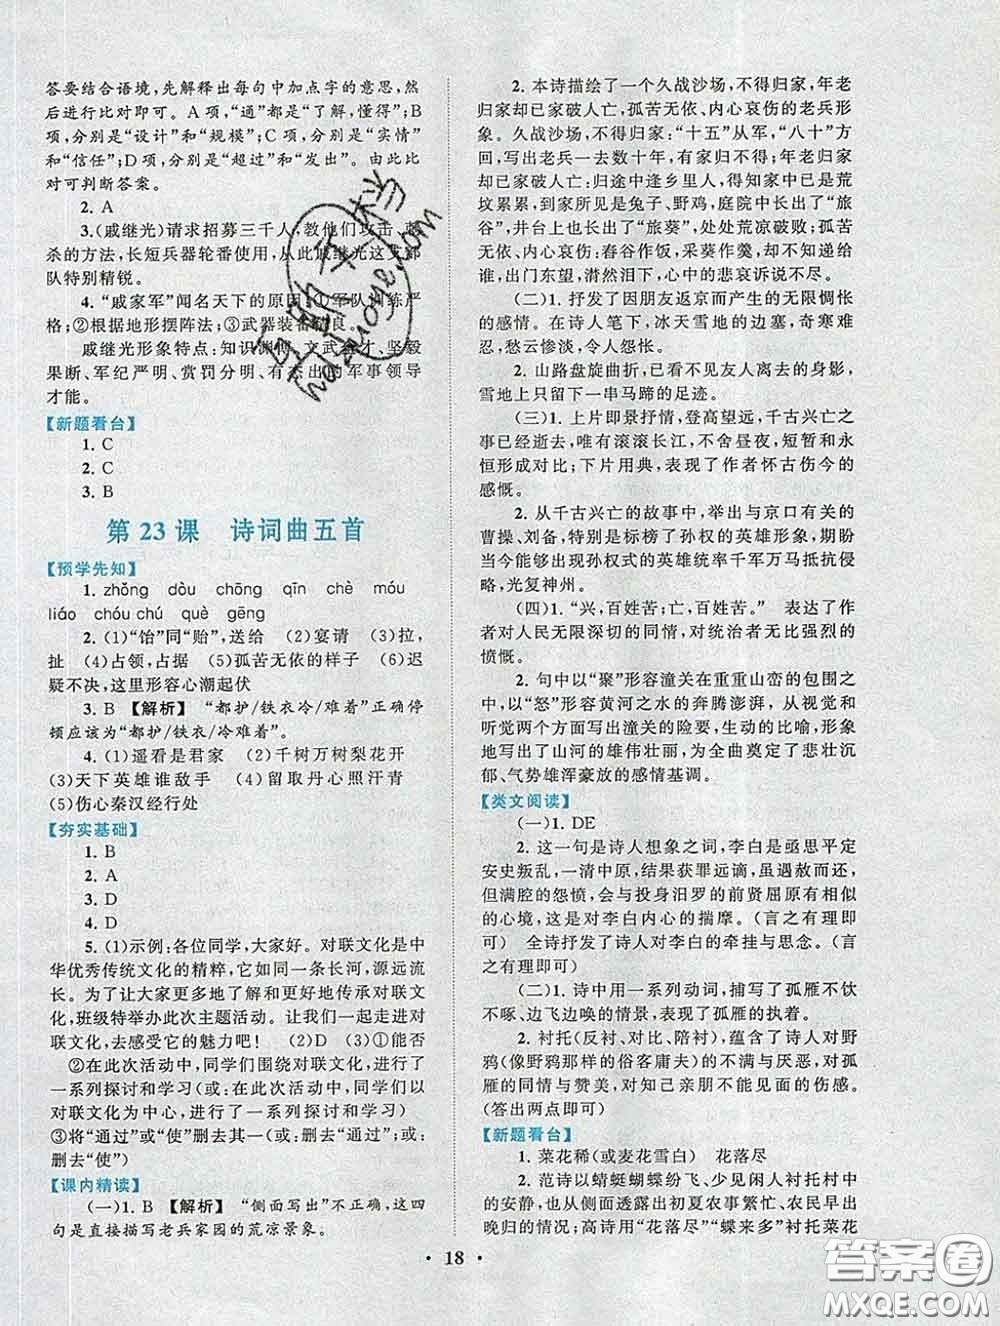 答要结合语境,先解释出每句中加点字的意思,然
后进行比对即可。A 项,“通”都是“了解,懂得”;B
项,分别是“设计”和“规模”;C 项,分别是“实情”
和“信任”;D 项,分别是“超过”和“发出”。由此比
对可判断答案。
2. A
3.(戚继光)请求招募三千人,教他们攻击、
杀的方法,长短兵器轮番使用,从此戚继光这支部
队特别精锐。
4.“戚家军”闻名天下的原因:①军队训练严
格;②根据地形摆阵法;③武器装备精良。
戚继光形象特点:知识渊博、文武 才、坚毅
果断、军纪严明、赏罚分明、有杰出 军事领导
才能。
【新题看台】
1. C
2. C
3. B
第 23 课 诗词曲五首
【预学先知】
1. zhǒng dòu chōng qīn chè móu
liáo chóu chú què gēng
2. (1)“饴”同“贻”,送给 (2)宴请 (3)拉,
扯 (4)占领,占据 (5)孤苦无依的样子 (6)迟
疑不决,这里形容心潮起伏
3. B 【解析】 “都护/铁衣冷/难着”正确停
顿应该为“都护/铁衣/冷难着”。
4. (1)遥看是君家 (2)千树万树梨花开
(3)天下英雄谁敌手 (4)留取丹心照汗青
(5)伤心秦汉经行处
【夯实基础】
1. B
2. A
3. D
4. D
5. (1)示例:各位同学,大家好。对联文化是中
华优秀传统文化的精粹,它如同一条长河,源远流
长。为了让大家更多地了解和更好地传承对联文
化,班级特举办此次主题活动。让我们一起走进对
联文化,去感受它的魅力吧! (2)D (3)①能否
②在此次活动中,同学们围绕对联文化,进行了
一系列探讨和学习(或:在此次活动中,同学们以
对联文化为中心,进行了一系列探讨和学习)
③将“通过”或“使”删去其一(或:删去“通过”;或:
删去“使”)
【课内精读】
(一)1. B 【解析】 “侧面写出”不正确,这四
句是直接描写老兵家园的荒凉景象。
2. 本诗描绘了一个久战沙场,不得归家,年老
归家却已家破人亡,孤苦无依、内心哀伤的老兵形
象。久战沙场,不得归家:“十五”从军,“八十”方
回,写出老兵一去数十年,有家归不得;年老归家
却却已家破人亡:归途中逢乡里人,得知家中已是荒
坟累累,到家所见是兔子、野鸡,庭院中长出了“旅
谷”,井台上也长出了“旅葵”,处处荒凉破败;孤苦
无依,内心哀伤:舂谷作饭,采葵作羹,却不知送给
谁,出门东望,潸然泪下,心中的悲哀诉说不尽。
(二)1. 抒发了因朋友返京而产生的无限惆怅
的感情。在诗人笔下,冰天雪地的边塞,奇寒难
忍,愁云惨淡,令人怨怅。
2. 山路盘旋曲折,已看不见友人离去的身影,
雪地上只留下一串马蹄的足迹。
(三)1. 上片即景抒情,登高望远,千古兴亡之
事已经逝去,唯有滚滚长江,不舍昼夜,短暂和永
恒形成对比;下片用典,表现了作者怀古伤今的
感慨。
2. 从千古兴亡的故事中,举出与京口有关的
曹操、刘备,特别是标榜了孙权的英雄形象,期盼
当今能够出现孙权式的英雄统率千军万马抗击侵
略,光复神州。
(四)1.“兴,百姓苦;亡,百姓苦。” 表达了作
者对人民无限深切的同情,对统治者无比强烈的
愤慨。
2. 句中以“聚”形容潼关在重重山峦的包围之
中,以“怒”形容黄河之水的奔腾澎湃,从视觉和
听觉两个方面写出潼关的险要,生动的比喻,形象
地写出了山河的雄伟壮丽,为全曲奠定了悲壮沉
郁、气势雄浑豪放的感情基调。
【类文阅读】
(一)1. DE
2. 这一句是诗人想象之词,李白是亟思平定
安史叛乱,一清中原,结果获罪远谪,虽遇赦而还,
但满腔的怨愤,会与投身汨罗的前贤屈原有相似
的心境,这是对李白内心的揣摩。(言之有理即
可) 全诗抒发了诗人对李白的牵挂与思念。(言
之有理即可)
(二)1. 诗中用一系列动词,描写了孤雁不饮
不啄、边飞边唤的情景,表现了孤雁的执着。
2. 衬托(反衬、对比、陪衬),蕴含了诗人对野
鸦(像野鸦那样的俗客庸夫)的不满与厌恶,对孤
雁的同情与赞美,对知己亲朋不能见面的伤感。
(答出两点即可)
【新题看台】
1. 菜花稀(或麦花雪白) 花落尽
2. 范诗以蜻蜓蝴蝶纷飞、少见行人衬托村中
的安静,也从侧面透露出初夏农事繁忙、农民早出
晚归的情况;高诗用“花落尽”“蝶来多”衬托菜花
• 18 •
答案圈
MXQE.COM